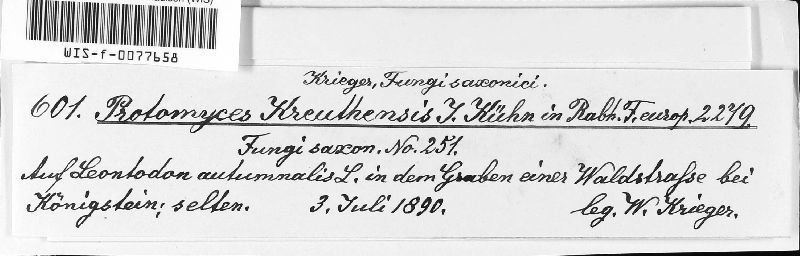 WIS-f-0077658
Krieger, Fungi saxonici.
601. Protomyces Kreuthensis J. Kühn in Rabh. F. europ. 2279.
Fungi saxon. No. 251.
Auf Leontodon autumnalis L. in dem Graben einer Waldstrasse bei
Königstein; selten. 3. Juli 1890. leg. W. Krieger.